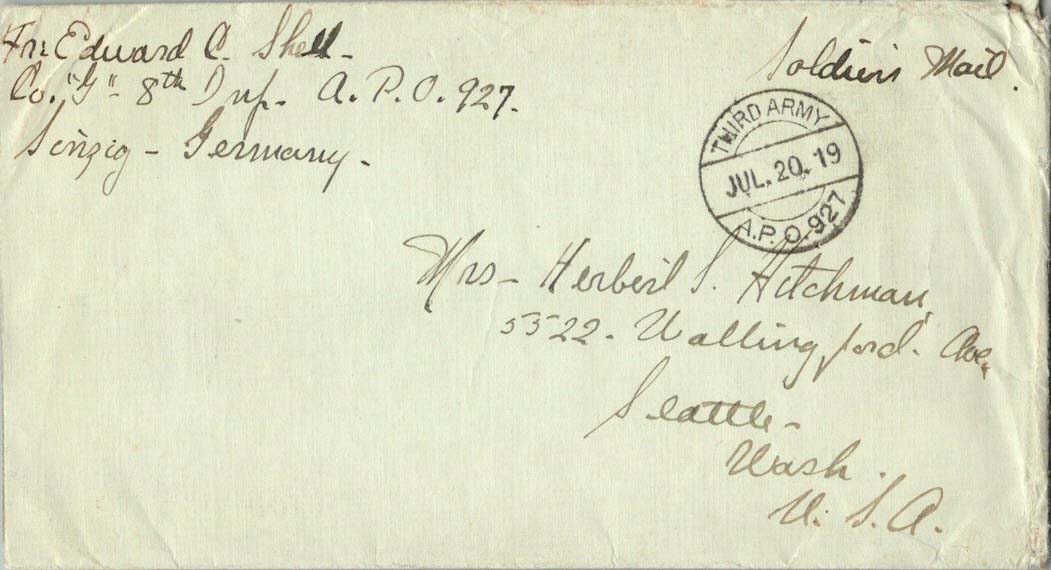 Fr: Edward C. Shell-
Co. "G"- 8th Inf- A.P.O. 927.
Sinzig - Germany -
Soldiers Mail.
THIRD ARMY
JUL. 20. 19
A.P.O. 927
Mrs- Herbert S. Hitchman,
5522- Wallingford. Ave,
Seattle-
Wash.
U. S. A.